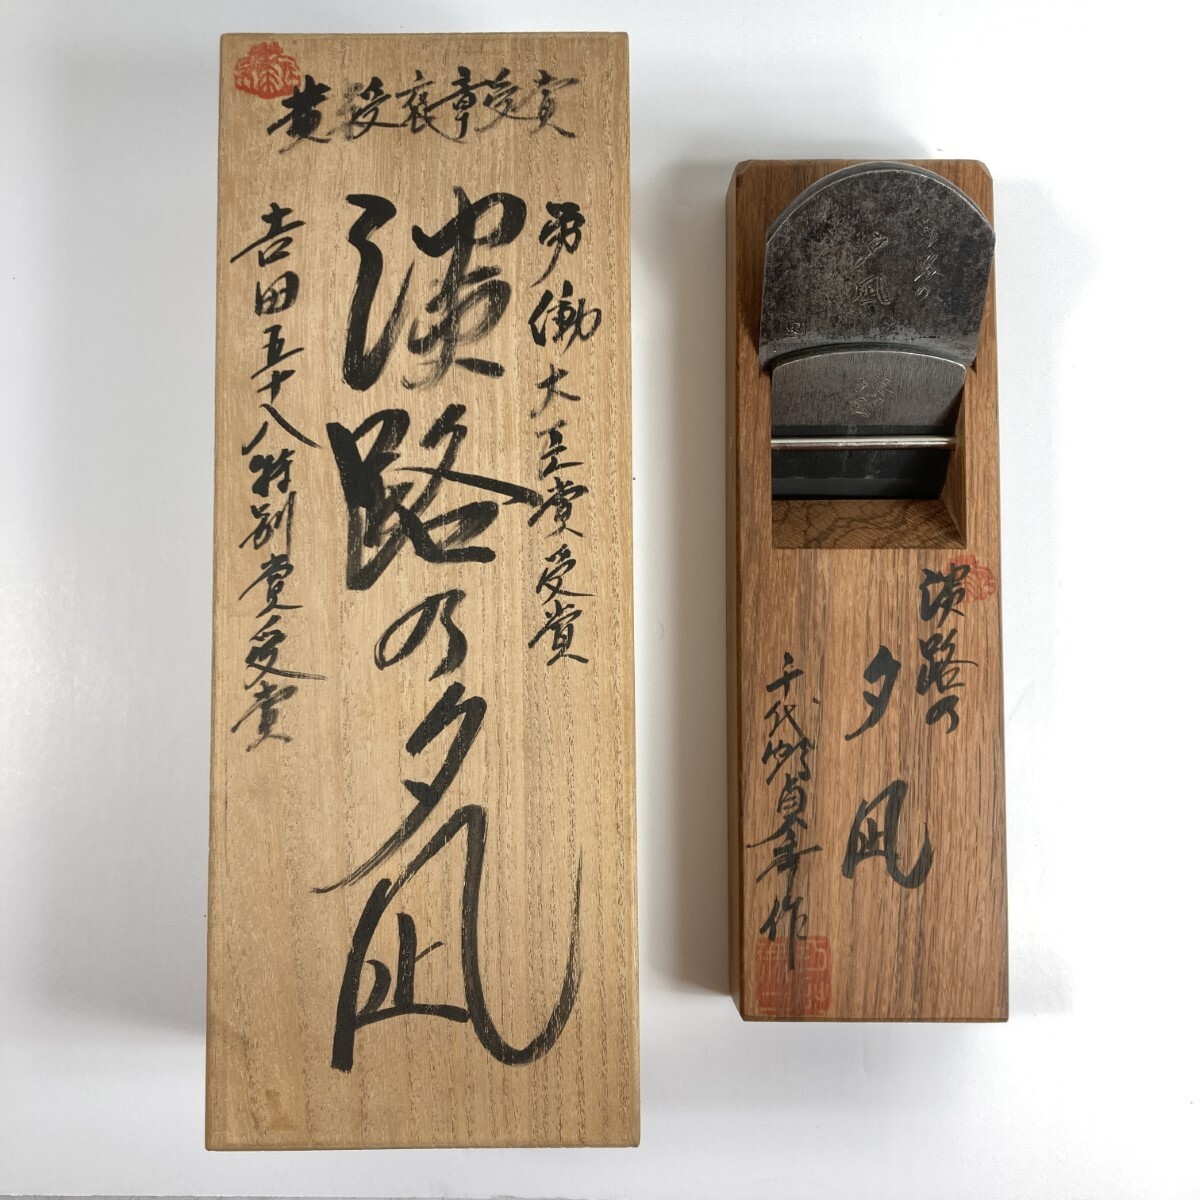 黄授褒章受賞
労働大臣賞受賞
淡路の夕凪
吉田五十八特別賞受賞
夕凪
淡路の
夕凪
千代鶴貞秀作